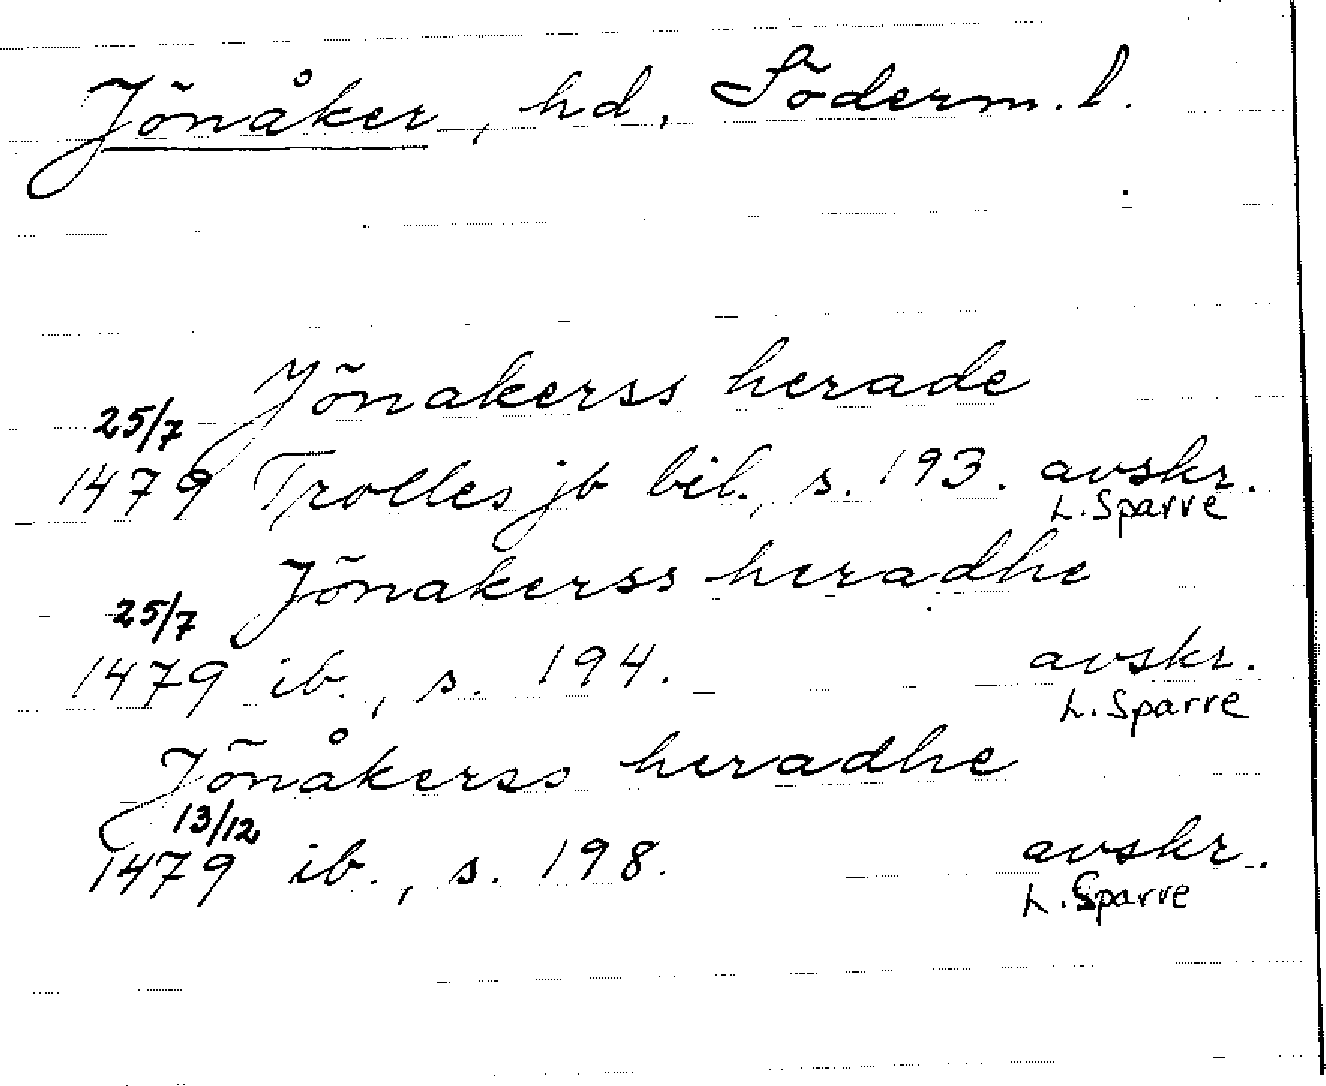 Jönåker, hd, Söderm. l.
Jönakerss herade
25/7
1479 Trolles jb bil., s. 193. avskr.
L. Sparre
Jönakerss heradhe
25/7
1479 ib., s. 194. avskr.
L. Sparre
Jönåkerss heradhe
13/12
1479 ib., s. 198. avskr.
L. Sparre